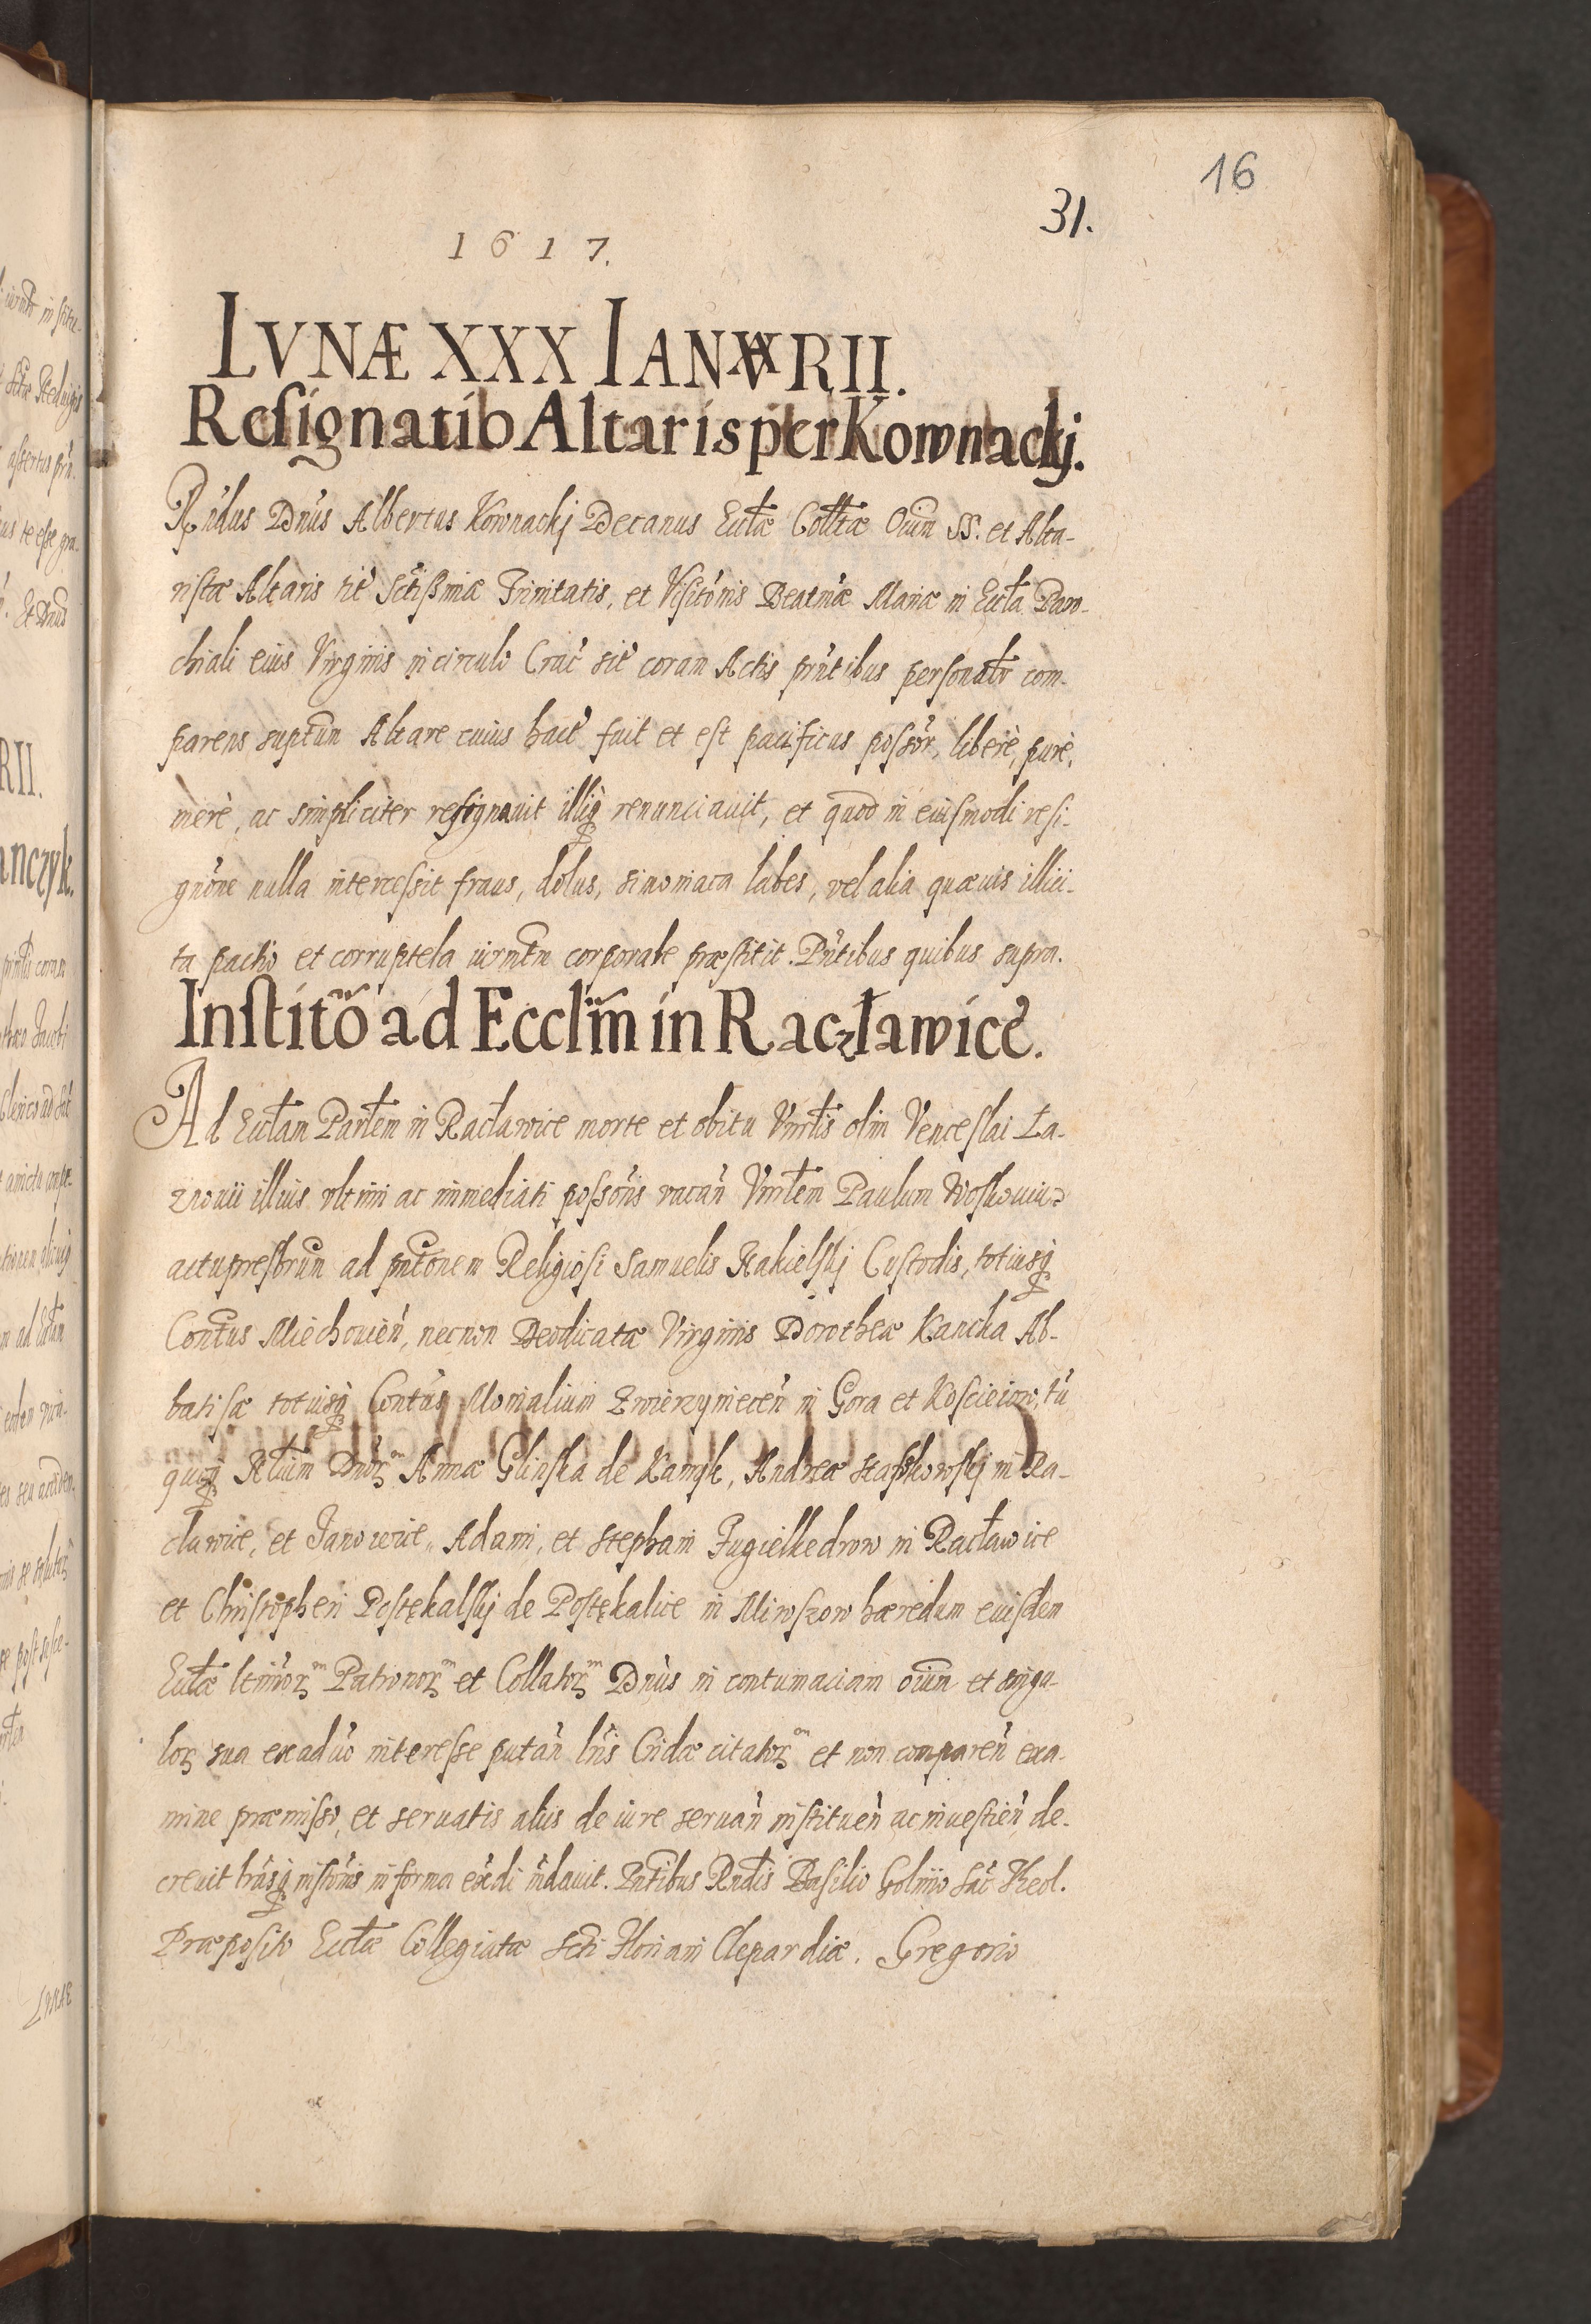 16
31.
1617.
LVNÆ XXX IANVARII.
Resignatio Altaris per Kownackj.
Rńdus Dńus Albertus Kownackj Decanus Eccłæ Collłæ Oium SS. et Alta-
ristæ Altaris tit́ Sctissimæ Trinitatis, et Visitońis Beatmæ Mariæ in Eccła Paro-
chiali eius Virginis in circulo Crać sit́ coran Actis pńtibus personałr com-
parens suptum Altare cuius hact́ fuit et est pacificus possor, liberè, purè,
merè, ac simpliciter resignauit illiq renunciauit, et quod in eiusmodi resi-
gnońe nulla intercessit fraus, dolus, simoniaca labes, vel alia quæuis illici-
ta pactio et corruptela iurmtm corporale præstitit. Pńtibus quibus supra.
Institõ ad Ecclim in Raczławice.
Ad Eccłam Parłem in Racławice morte et obitu Vnrłis olim Venceslai Ła-
znouii illius vltimi ac immediati possońis vacań Vnrłem Paulum Woskouiu
actupresbrum ad pntonem Religiosi Samuelis Nakielskj Custodis, totiusq
Contus Miechouień, necnon Deodicatæ Virginis Dorotheæ Kancka Ab-
batisæ totiusq Contús Monialium Zwierzyniecen in Gora et Koscieiow, tú
quoq Dńoꝝ Annæ Glinska de Kansk, Andreæ Staszkowskj in Ra-
cławice, et Janowice, Adami, et Stephani Fugielkedrow in Racławice
et Christopheri Postękalskj de Postękalice in Miroszow hæredum eiusdem
Eccłæ ltimoꝝ Patronoꝝ et Collatoꝝ Dńus in contumaciam oium et singu-
loꝝ sua ex aduo interesse putań lris Cridæ citatoꝝ et non comparen exa-
mine præmisso, et seruatis aliis de iure seruań instituen ac inuestień de-
creuit lrasq instońis in forma exdi mdauit. Pntibus Rndis Basilio Golinio Sać Theol.
Præposito Eccłæ Collegiatæ Scti Floriani Clepardiæ. Gregorio